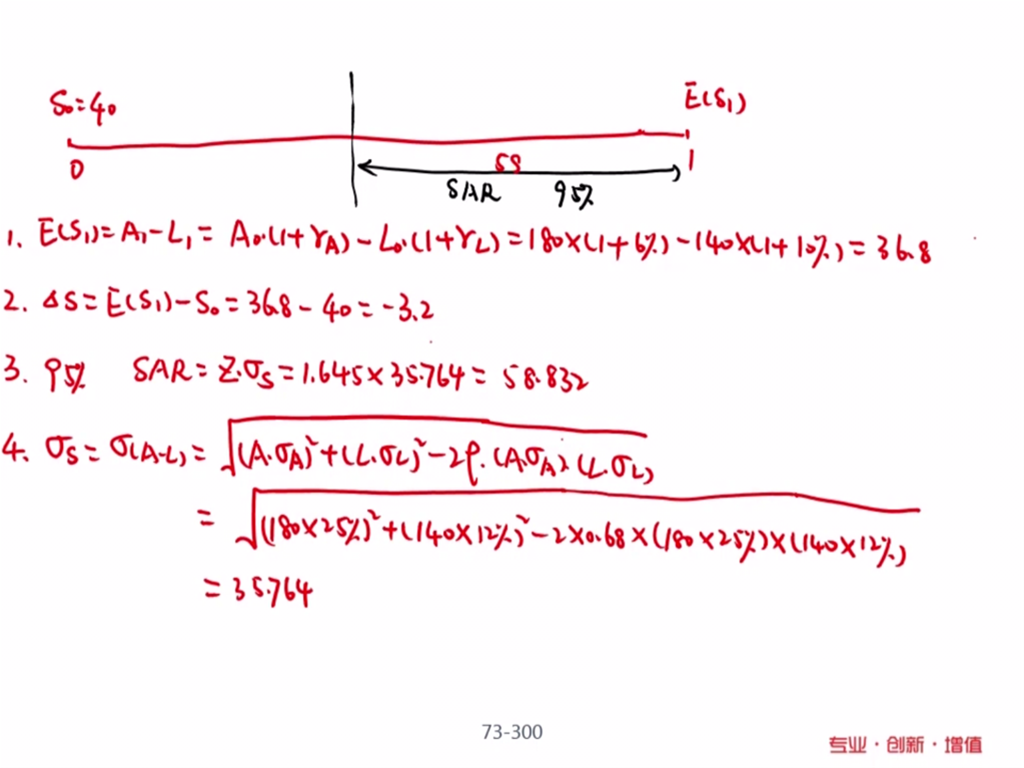 S₀=40
E(S₁)
0
59
1
SAR 95%
1. E(S₁)=A₁-L₁= A₀·(1+rA)-L₀·(1+rL)=180×(1+6%)-140×(1+10%)=36.8
2. ΔS=E(S₁)-S₀=36.8-40=-3.2
3. 95% SAR=Z·σs=1.645×35.764=58.832
4. σs=σ(A-L)=√(A·σA)²+(L·σL)²-2ρ·(A·σA)·(L·σL)
=√(180×25%)²+(140×12%)²-2×0.68×(180×25%)×(140×12%)
=35.764
73-300
专业·创新·增值